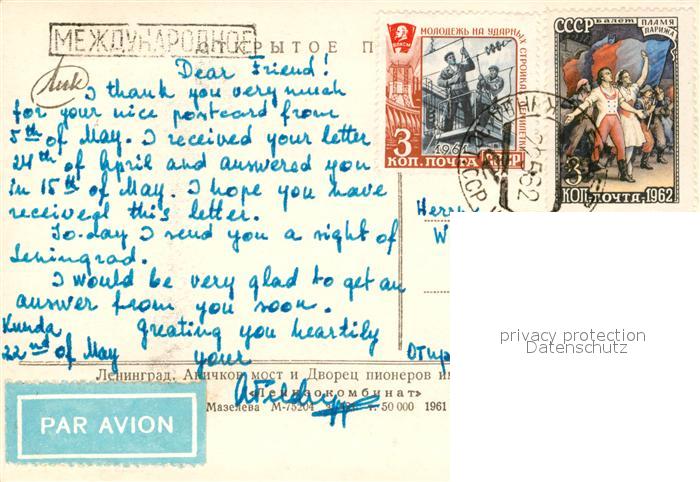 МЕЖДУНАРОДНОЕ
ОТКРЫТОЕ П
Dear Friend!
I thank you very much
for your nice postcard from
5th of May. I received your letter
24th of April and answered you
in 15th of May. I hope you have
received this letter.
To-day I send you a sight of
Leningrad.
I would be very glad to get an
answer from you soon.
Kunda greating you heartily
22nd of May your
Ленинград. Аничков мост и Дворец пионеров им
«Ленфотокомбинат»
Мазелева М-75204 т. 50 000 1961
PAR AVION
ВЛКСМ
МОЛОДЕЖЬ НА УДАРНЫХ
СТРОЙКАХ СЕМИЛЕТКИ
1961
3
КОП. ПОЧТА СССР
СССР балет ПЛАМЯ
ПАРИЖА
3
КОП. ПОЧТА. 1962
СССР
Herrn
W
Отпр
privacy protection
Datenschutz